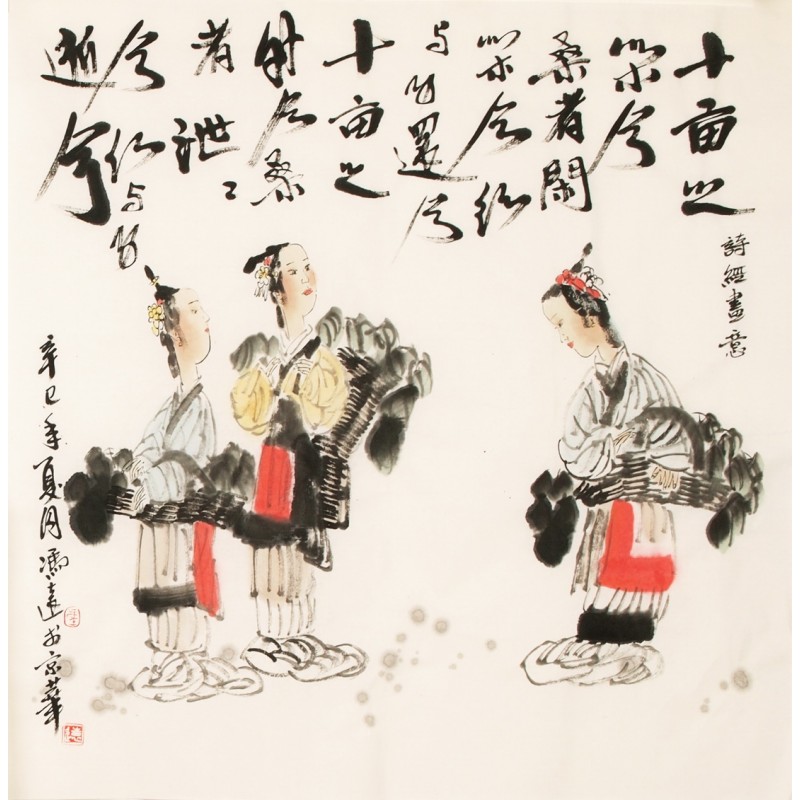 十亩之
閑兮
桑者閑
閑兮行
与子還兮
十亩之
外兮桑
者泄〻
兮行与子
逝兮
詩經畫意
辛巳年夏月馮遠於京華